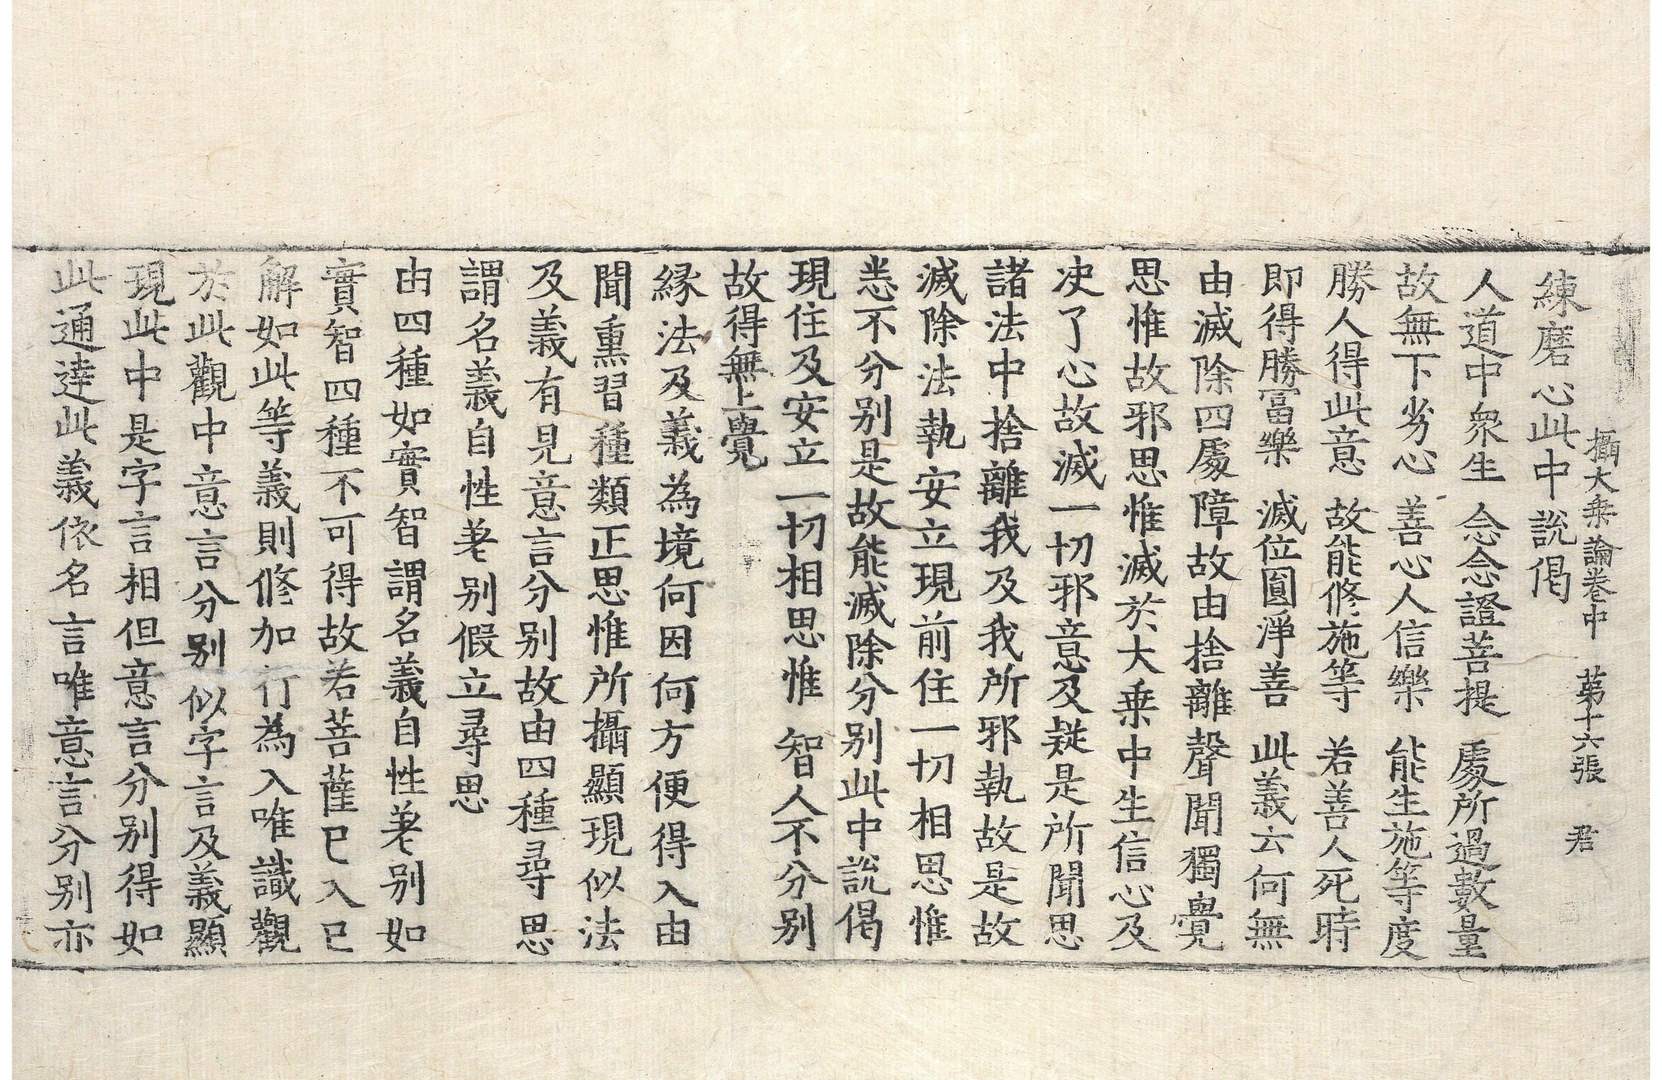 攝大乗論卷中 第十六張 君
練磨心此中說偈
人道中衆生 念念證菩提 處所過數量
故無下劣心 善心人信樂 能生施等度
勝人得此意 故能修施等 若善人死時
即得勝富樂 滅位圓淨善 此義云何無
由滅除四處障故由捨離聲聞獨覺
思惟故邪思惟滅於大乗中生信心及
决了心故滅一切邪意及疑是所聞思
諸法中捨離我及我所邪執故是故
滅除法執安立現前住一切相思惟
悉不分別是故能滅除分別此中說偈
現住及安立 一切相思惟 智人不分別
故得無上覺
緣法及義為境何因何方便得入由
聞熏習種類正思惟所攝顯現似法
及義有見意言分別故由四種尋思
謂名義自性差別假立尋思
由四種如實智謂名義自性差別如
實智四種不可得故若菩薩已入已
解如此等義則修加行為入唯識觀
於此觀中意言分別似字言及義顯
現此中是字言相但意言分別得如
此通達此義依名言唯意言分別亦